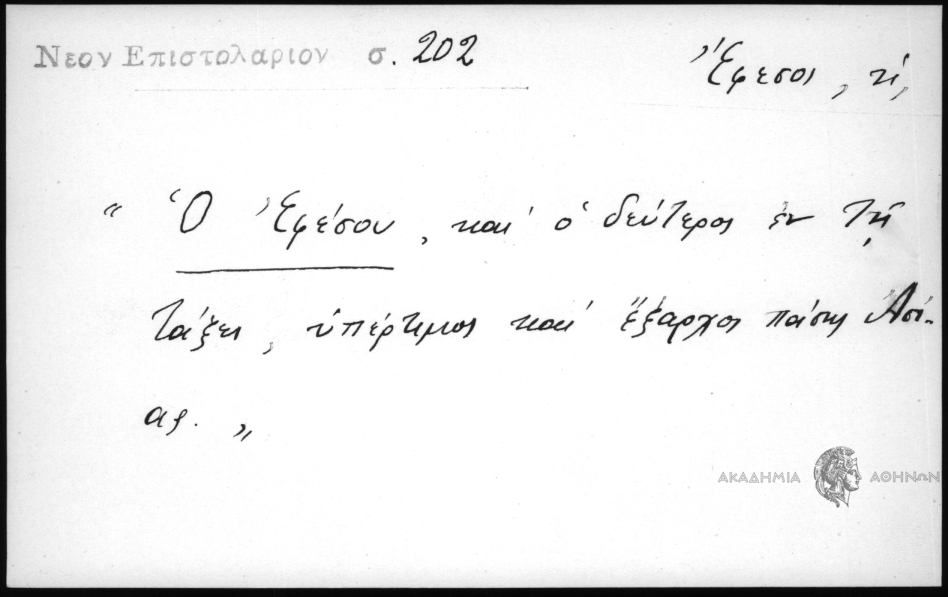 Νεον Επιστολαριον σ. 202
Ἔφεσος, ἡ,
“ Ὁ Ἐφέσου, καὶ ὁ δεύτερος ἐν τῇ
τάξει, ὑπέρτιμος καὶ ἔξαρχος πάσης Ἀσί-
ας. „
ΑΚΑΔΗΜΙΑ ΑΘΗΝΩΝ